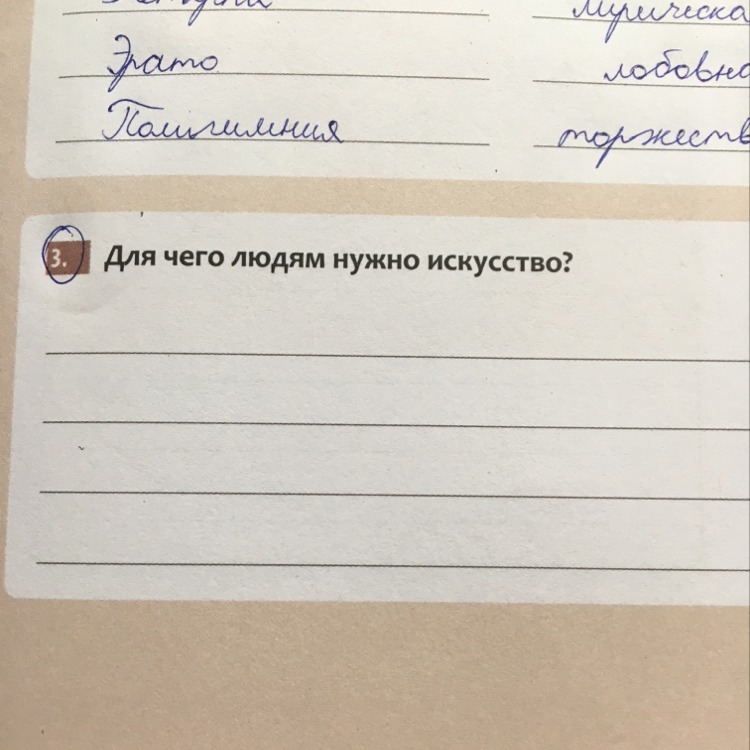 Эрато лобовно
Полигимния торжеств
3. Для чего людям нужно искусство?